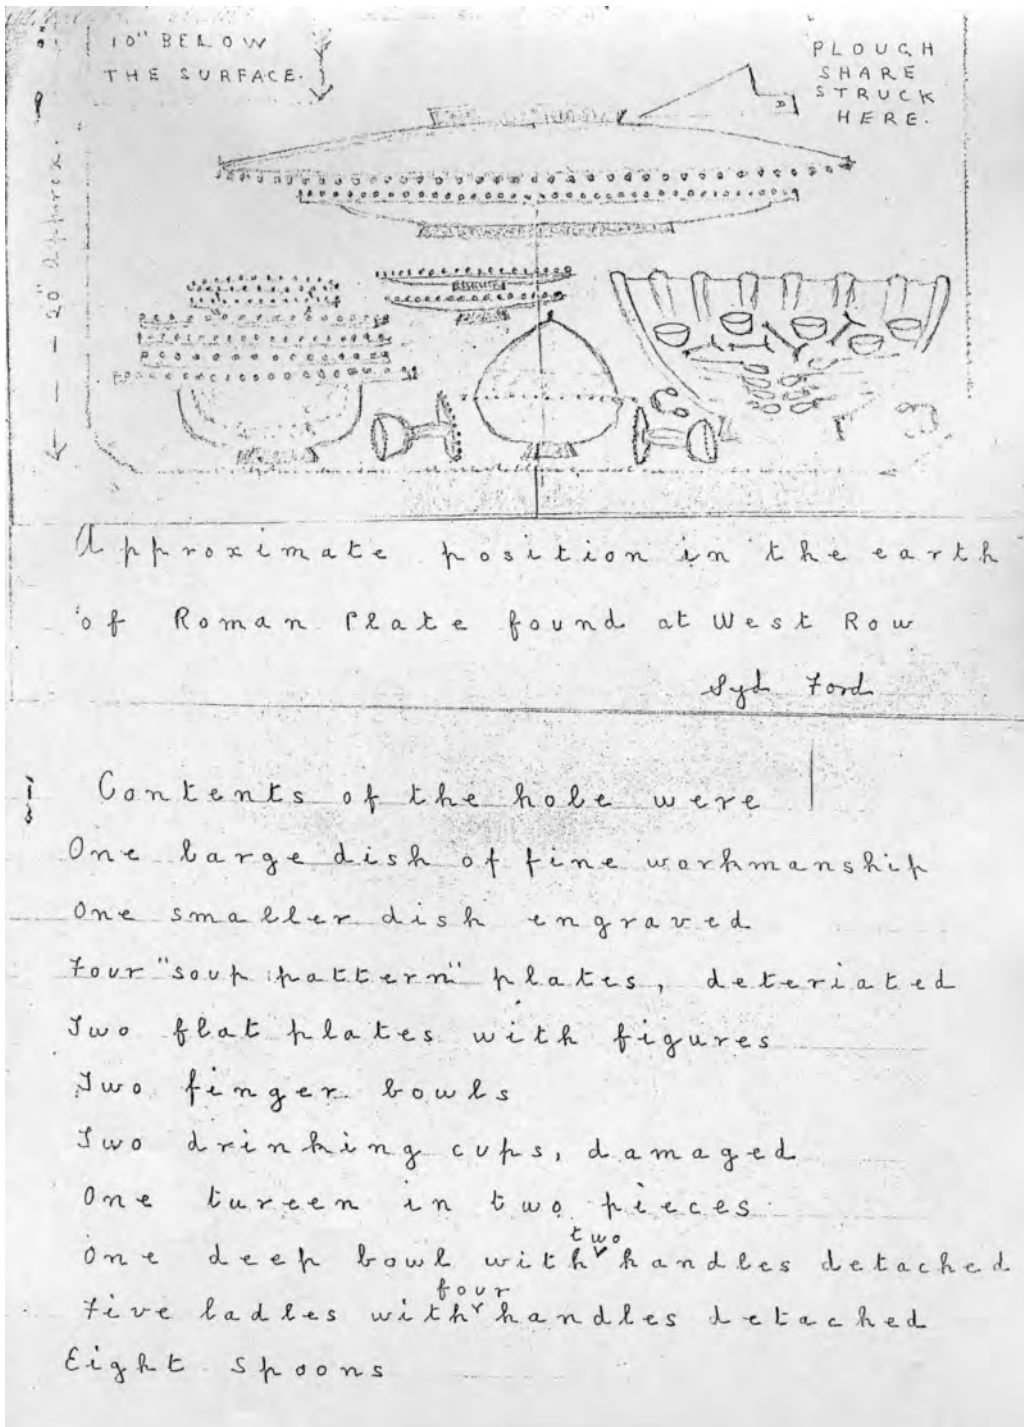 10" BELOW
THE SURFACE.
PLOUGH
SHARE
STRUCK
HERE.
20" approx.
Approximate position in the earth
of Roman Plate found at West Row
Syd Ford
Contents of the hole were
One large dish of fine workmanship
One smaller dish engraved
Four "soup pattern" plates, deteriated
Two flat plates with figures
Two finger bowls
Two drinking cups, damaged
One tureen in two pieces
two
One deep bowl with handles detached
four
Five ladles with handles detached
Eight spoons